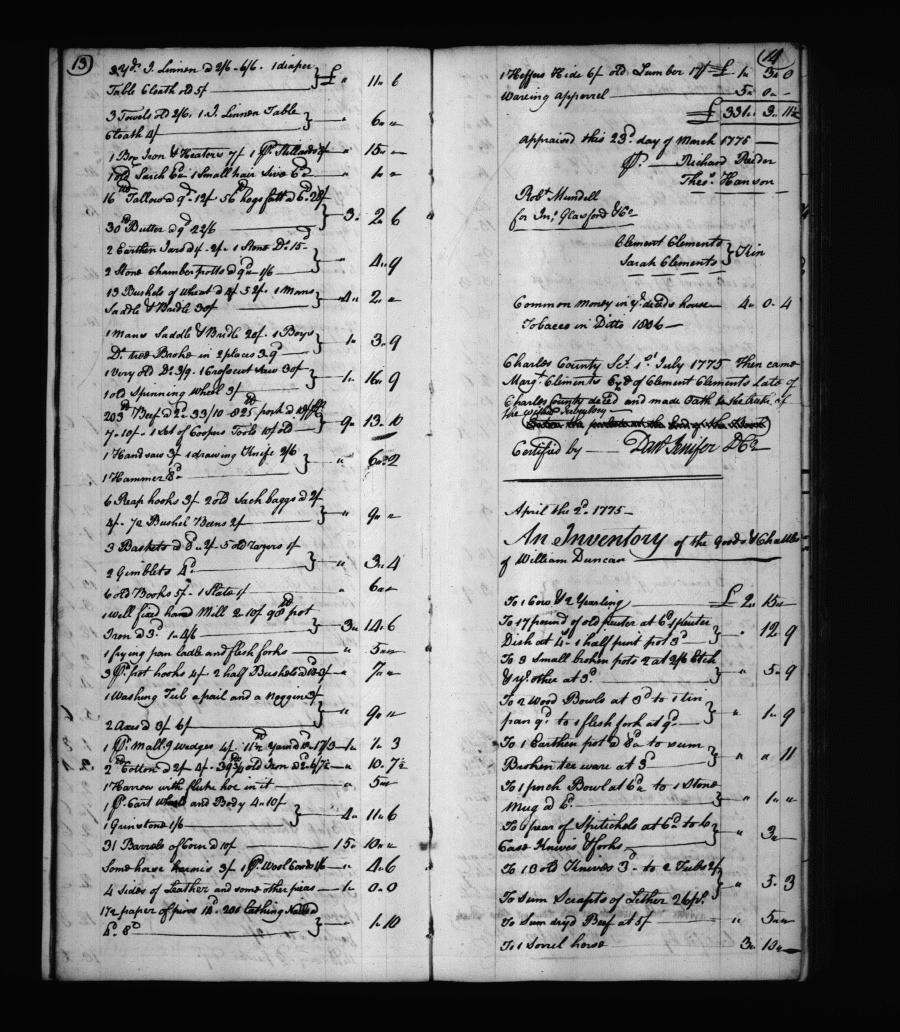 13
3 Yds. I. Linnen @ 2/6 - 6/6. 1 diaper
Table Cloath old 5/ } £ " 11 " 6
3 Towels old 2/6. 1 I. Linnen Table
Cloath 4/ } " 6 " "
1 Box Iron & Heaters 7/ 1 Pr. Stillards " 15 " -
1 old Sarch 6d. 1 Small hair Sive 6d " 1 " -
16 lb Tallow @ 9d. 12/ 56 lb hogs fatt @ 6d. 28/
30 lb Butter @ 9d 22/6 } 3 " 2 " 6
2 Earthen Jars @ 1/ - 2/. 1 Stone Do. 15
2 Stone Chamber potts @ 9d 1/6 } " 4 " 9
13 Bushels of Wheat @ 4/ 52/. 1 Mans
Saddle & Bridle 30/ } 4 " 2 " -
1 Mans Saddle & Bridle 20/. 1 Boys
Do. tree Broke in 2 places 3.9 } 1 " 3 " 9
1 Very old Do. 3/9. 1 Crosscut Saw 30/
1 old Spinning Wheel 3/ } 1 " 16 " 9
203 lb Beef @ 2d. 33/10. 825 lb pork @
7 - 10/. 1 Set of Coopers Tools 10/ } 9 " 13 " 10
1 Handsaw 3/ 1 drawing Knife 2/6
1 Hammer 8d } " 6 " 2
6 Reap hooks 3/ 2 old Sack baggs @ 2/
4/. 1/2 Bushel Beans 2/ } " 9 " "
3 Baskets @ 8d. 2/ 5 old razors 1/
2 Gimblets 4d } " 3 " 4
6 old Books 5/. 1 Slate 1/ " 6 " "
1 well fixed hand Mill 2 . 10/ 98 lb pot
Iron @ 3d. 1 " 4/6 } 3 " 14 " 6
1 frying pan Ladle and flesh forks " 5 " "
3 Pr. pot hooks 4/ 2 half Bushels @ 18d 3/ " 7 " "
1 Washing Tub a pail and a noggin 3/
2 Axes @ 3/ 6/ } " 9 " "
1 Pr. Mall. 9 wedges 4/. 11 1/2 lb Yarn @ 18d. 17/3 1 " 1 " 3
2 lb Cotton @ 2/ 4/. 39 3/4 lb old Iron @ 2d. 6/7 1/2 " 10 " 7 1/2
1 Harrow with fluke hoe in it " 5 "
1 Pr. Cart Wheels and Body 4 " 10/
1 Grinstone 1/6 } 4 " 11 " 6
31 Barrels of Corn @ 10/ 15 " 10 " "
Some horse harnis 3/ 1 Pr. Wool Cards 1/6 " 4 " 6
4 Sides of Leather and some other peas 1 " 0 " 0
1 1/2 paper of pins 18d. 200 Lathing Nailes
4d. 8d } 1 " 10
14
1 Heffers Hide 6/ old Lumber 17/ £ 1 " 3 " 0
Wareing apperrel 5 " 0 " -
£ 331 " 3 " 11 1/2
Appraised this 23d. day of March 1775
Pr. Richard Reeder
Theo. Hanson
Robt. Mundell
for Jno. Glasford & Co
Clement Clements
Sarah Clements } Kin
Common Money in ye. deceds house 4 " 0 " 4
Tobacco in Ditto 1806
Charles County Sct. 1st July 1775 Then came
Margt. Clements Exx of Clement Clements Late of
Charles County deced and made Oath to the truth of
the within Inventory
Certified by Danl Jenifer DCo
April the 2d. 1775
An Inventory of the goods & Chattles
of William Duncan
To 1 Cow & 2 Yearling £ 2 " 15 "
To 17 pound of old peuter at 6d 1 peuter
Dish at 4/. 1 half pint pot 3d } " 12 " 9
To 3 Small broken pots 2 at 2/6 Etch
& ye. other at 9d } " 5 " 9
To 2 Wood Bowls at 3d to 1 tin
pan 9d. to 1 flesh fork at 9d. } " 1 " 9
To 1 Earthen pot @ 8d to sum
Broken tee ware at 3d } " " 11
To 1 punch Bowl at 6d to 1 Stone
Mug @ 6d. } " 1 " "
To 6 pear of Spitichels at 6d to 6
Case Knives & forks } " 3 "
To 13 old Knives 3d. to 2 Tubs 2/
To Sum Scrapts of Lether 26 ps. } " 3 " 3
To Sum dryd Beef at 5/ " 5 " "
To 1 Sorrel horse 3 " 10 "